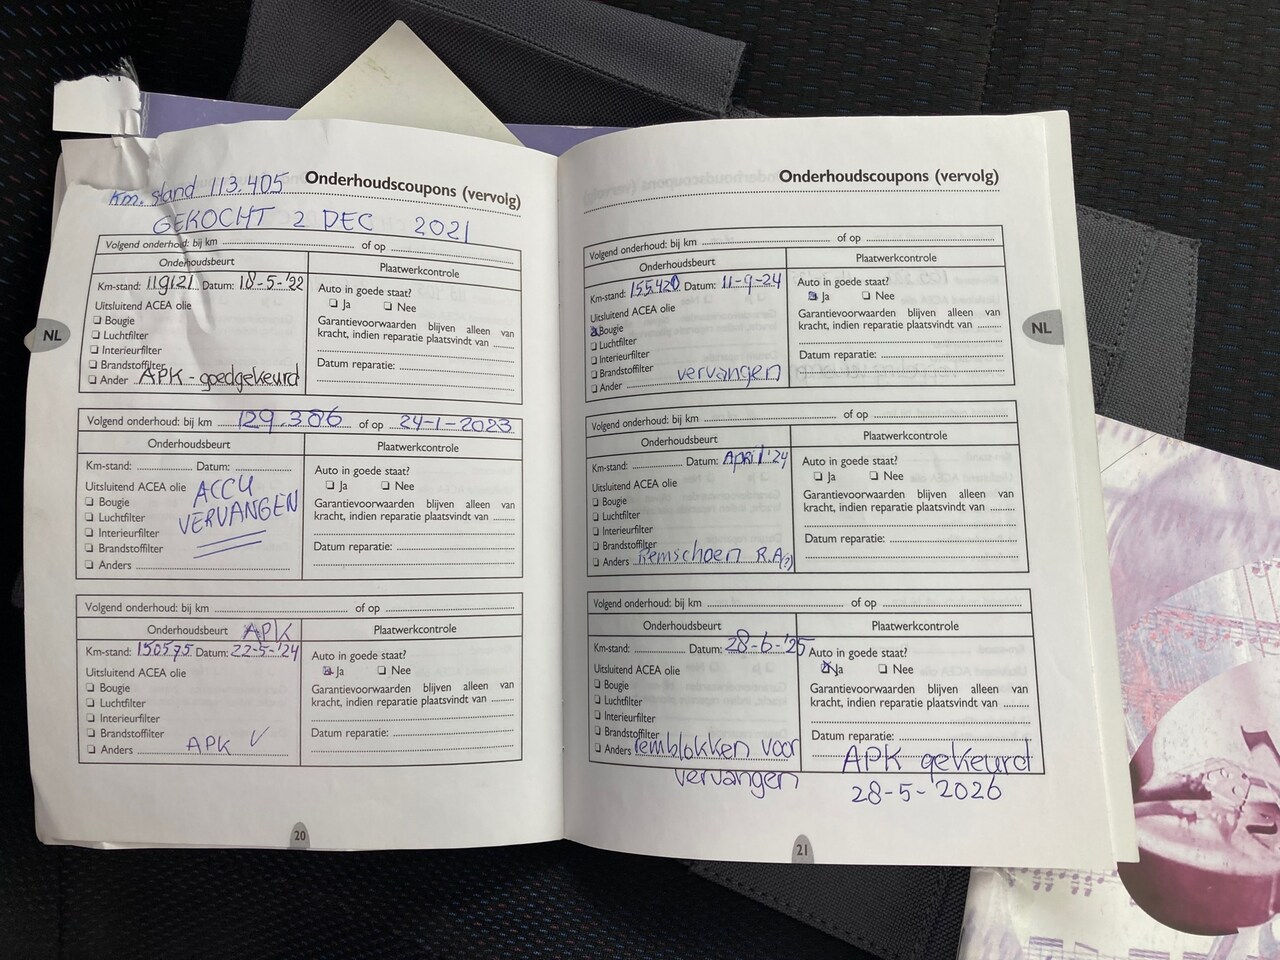 Km. stand 113.405
Onderhoudscoupons (vervolg)
GEKOCHT 2 DEC 2021
Volgend onderhoud: bij km of op
Onderhoudsbeurt
Plaatwerkcontrole
Km-stand: 119121 Datum: 18-5-'22
Auto in goede staat?
Ja Nee
Uitsluitend ACEA olie
Bougie
Luchtfilter
Interieurfilter
Brandstoffilter
Ander APK - goedgekeurd
Garantievoorwaarden blijven alleen van
kracht, indien reparatie plaatsvindt van
Datum reparatie:
NL
Volgend onderhoud: bij km 129.386 of op 24-1-2023
Onderhoudsbeurt
Plaatwerkcontrole
Km-stand: Datum:
Uitsluitend ACEA olie
Bougie
Luchtfilter
Interieurfilter
Brandstoffilter
Anders
ACCU
VERVANGEN
Auto in goede staat?
Ja Nee
Garantievoorwaarden blijven alleen van
kracht, indien reparatie plaatsvindt van
Datum reparatie:
Volgend onderhoud: bij km of op
Onderhoudsbeurt APK
Plaatwerkcontrole
Km-stand: 150575 Datum: 22-5-'24
Uitsluitend ACEA olie
Bougie
Luchtfilter
Interieurfilter
Brandstoffilter
Anders APK √
Auto in goede staat?
Ja Nee
Garantievoorwaarden blijven alleen van
kracht, indien reparatie plaatsvindt van
Datum reparatie:
20
Onderhoudscoupons (vervolg)
Volgend onderhoud: bij km of op
Onderhoudsbeurt
Plaatwerkcontrole
Km-stand: 155.420 Datum: 11-9-24
Uitsluitend ACEA olie
Bougie
Luchtfilter
Interieurfilter
Brandstoffilter
Ander vervangen
Auto in goede staat?
Ja Nee
Garantievoorwaarden blijven alleen van
kracht, indien reparatie plaatsvindt van
Datum reparatie:
NL
Volgend onderhoud: bij km of op
Onderhoudsbeurt
Plaatwerkcontrole
Km-stand: Datum: April '24
Uitsluitend ACEA olie
Bougie
Luchtfilter
Interieurfilter
Brandstoffilter
Anders Remschoen R.A(?)
Auto in goede staat?
Ja Nee
Garantievoorwaarden blijven alleen van
kracht, indien reparatie plaatsvindt van
Datum reparatie:
Volgend onderhoud: bij km of op
Onderhoudsbeurt
Plaatwerkcontrole
Km-stand: Datum: 28-6-'25
Uitsluitend ACEA olie
Bougie
Luchtfilter
Interieurfilter
Brandstoffilter
Anders remblokken voor
vervangen
Auto in goede staat?
Ja Nee
Garantievoorwaarden blijven alleen van
kracht, indien reparatie plaatsvindt van
Datum reparatie:
APK gekeurd
28-5-2026
21